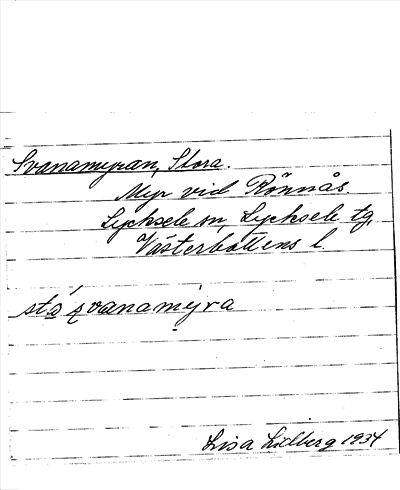 Svanamyran, Stora.
Myr vid Rönnås.
Lycksele sn, Lycksele tg.
Västerbottens l.
Lisa Lidberg 1934